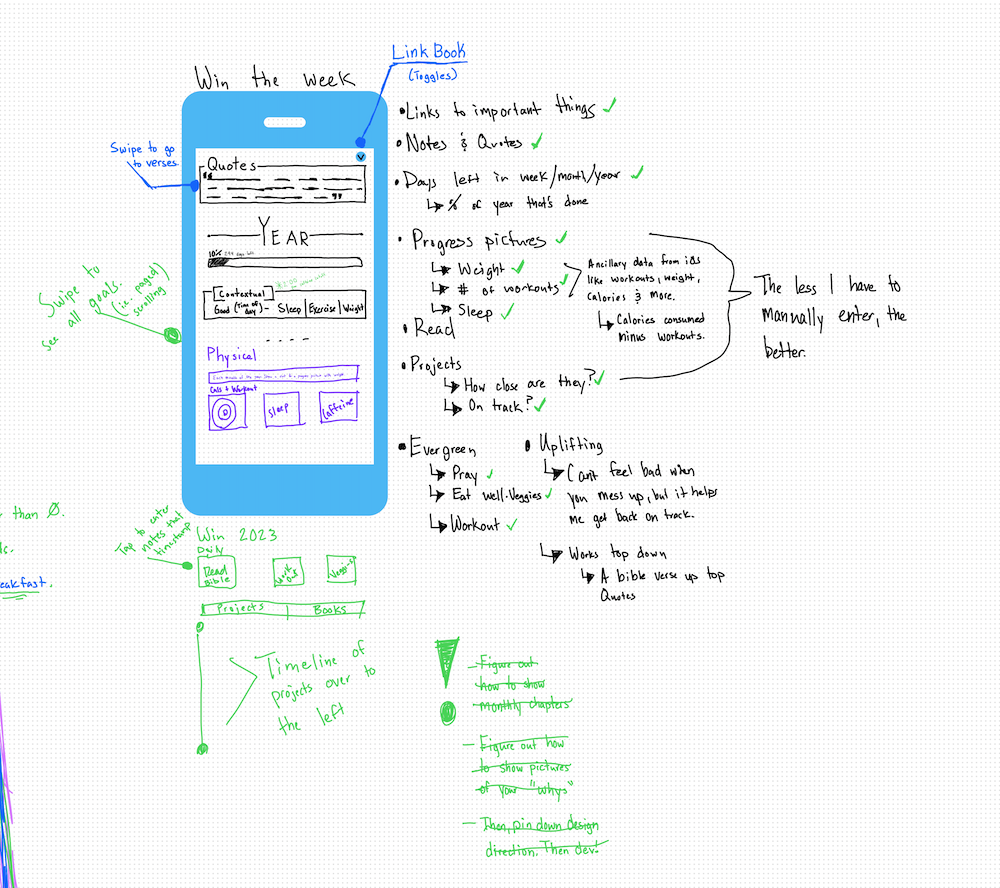 Win the week
Link Book
(Toggles)
Swipe to go
to verses
Quotes
YEAR
10%
Contextual
Good (Time of day) - Sleep | Exercise | Weight
Swipe to
see all goals.
(i.e. paged
scrolling)
Physical
Cals + Workout
Sleep
Caffeine
• Links to important things ✓
• Notes & Quotes ✓
• Days left in week/month/year ✓
↳ % of year that's done
• Progress pictures ✓
↳ Weight ✓
↳ # of workouts ✓
↳ Sleep ✓
Ancillary data from iOS
like workouts, weight,
calories & more.
↳ Calories consumed
minus workouts.
The less I have to
manually enter, the
better.
• Read
• Projects
↳ How close are they? ✓
↳ On track? ✓
• Evergreen
↳ Pray ✓
↳ Eat well-Veggies ✓
↳ Workout ✓
• Uplifting
↳ Can't feel bad when
you mess up, but it helps
me get back on track.
↳ Works top down
↳ A bible verse up top
Quotes
than Ø.
eakfast.
Tap to enter
notes that
timestamp
Win 2023
Daily
Read
Bible
Work
Out
Projects
Books
Timeline of
projects over to
the left
- Figure out
how to show
monthly chapters
- Figure out how
to show pictures
of your "whys"
- Then, pin down design
direction. Then dev!